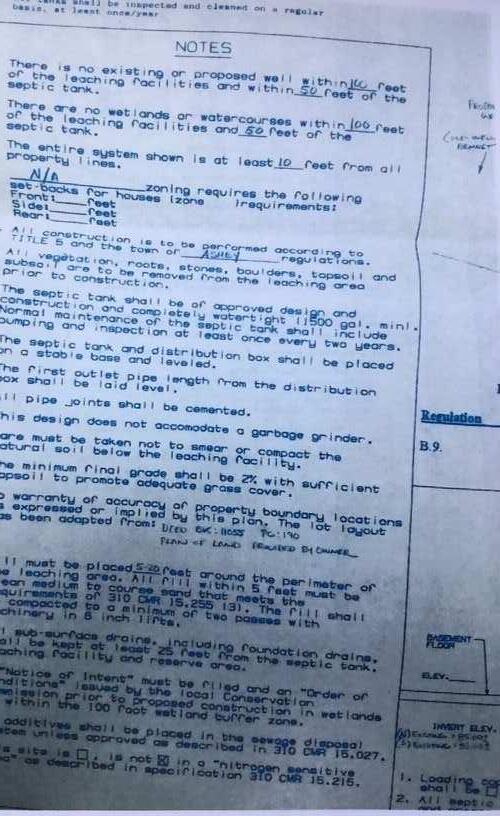 tanks shall be inspected and cleaned on a regular
basis, at least once/year
NOTES
There is no existing or proposed well within 100 feet
of the leaching facilities and within 50 feet of the
septic tank.
There are no wetlands or watercourses within 100 feet
of the leaching facilities and 50 feet of the
septic tank.
The entire system shown is at least 10 feet from all
property lines.
N/A zoning requires the following
set-backs for houses (zone )requirements:
Front: feet
Side: feet
Rear: feet
All construction is to be performed according to
TITLE 5 and the town of ASHBY regulations.
All vegatation, roots, stones, boulders, topsoil and
subsoil are to be removed from the leaching area
prior to construction.
The septic tank shall be of approved design and
construction and completely watertight (1500 gal. min).
Normal maintenance of the septic tank shall include
pumping and inspection at least once every two years.
The septic tank and distribution box shall be placed
on a stable base and leveled.
The first outlet pipe length from the distribution
box shall be laid level.
ll pipe joints shall be cemented.
his design does not accomodate a garbage grinder.
are must be taken not to smear or compact the
atural soil below the leaching facility.
he minimum final grade shall be 2% with sufficient
opsoil to promote adequate grass cover.
o warranty of accuracy of property boundary locations
s expressed or implied by this plan. The lot layout
as been adapted from: DEED BK: 11055 PG: 190
PLAN OF LAND PROVIDED BY OWNER
ll must be placed 5-20 feet around the perimeter of
e leaching area. All fill within 5 feet must be
ean medium to course sand that meets the
quirements of 310 CMR 15.255 (3). The fill shall
compacted to a minimum of two passes with
chinery in 6 inch lifts.
l sub-surface drains, including foundation drains,
all be kept at least 25 feet from the septic tank,
aching facility and reserve area.
"Notice of Intent" must be filed and an "Order of
nditions" issued by the local Conservation
mmission prior to proposed construction in wetlands
within the 100 foot wetland buffer zone.
additives shall be placed in the sewage disposal
stem unless approved as described in 310 CMR 15.027.
s site is ☐, is not ☒ in a "nitrogen sensitive
as described in specification 310 CMR 15.215.
Regulation
B.9.
BASEMENT
FLOOR
ELEV.
INVERT ELEV.
1. Loading
shall be ☐
2. All septic